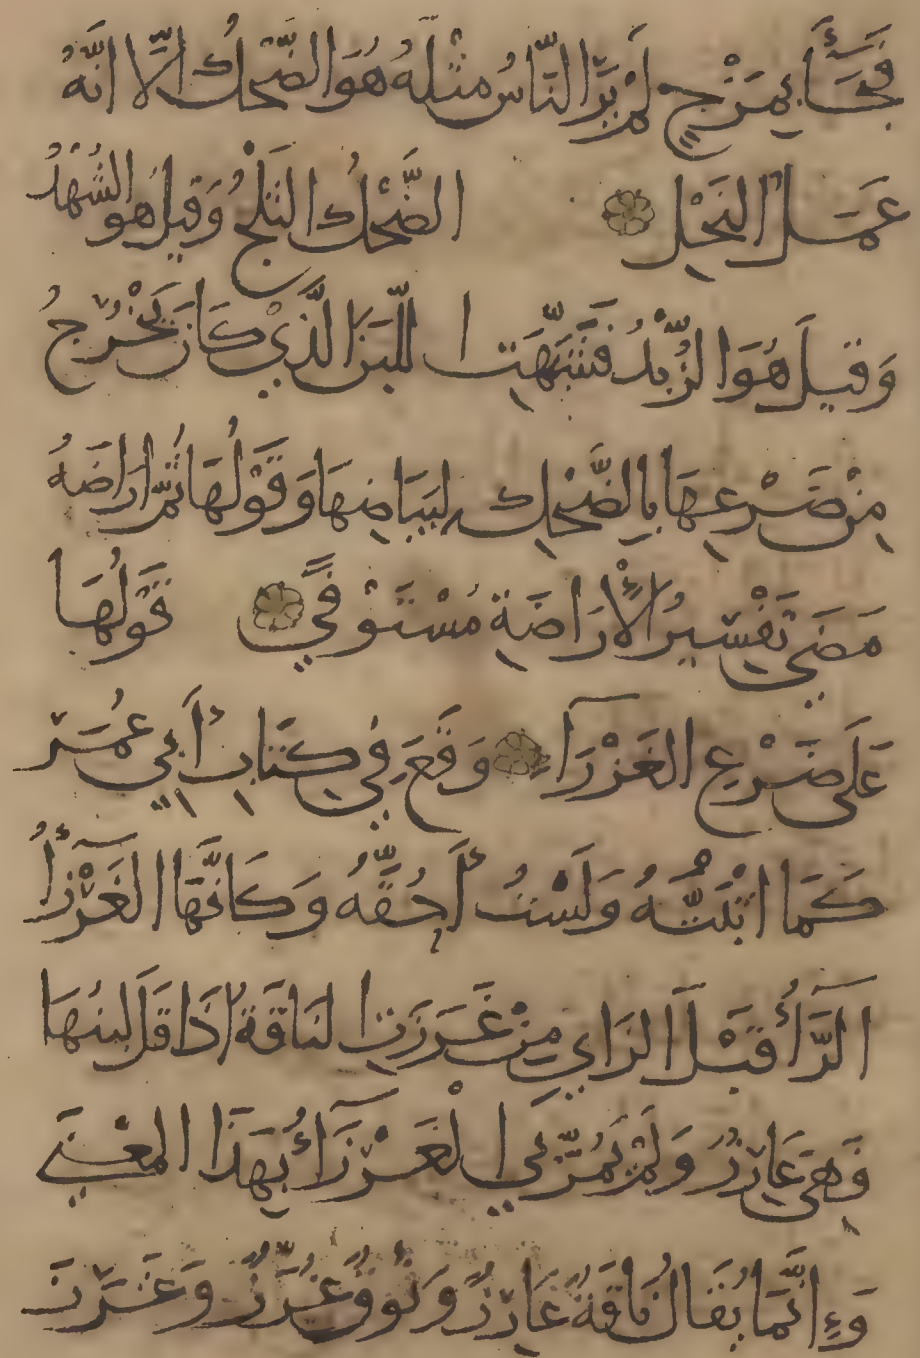 فَجَاءَ بِمَزْجٍ لَمْ يَرَ النَّاسُ مِثْلَهُ هُوَ الضَّحْكُ إلَّا انَّهُ
عَمَلُ النَحْلِ الضَّحْكُ الثَلْجُ وَقِيلَ هو الشُهْدُ
وَقيلَ هُوَ الزُّبْدُ فَشَبَّهَتِ اللَّبَنَ الَّذِي كَانَ يَخْرُجُ
مِنْ ضَرْعِهَا بِالضَّحْكِ لِبَيَاضِهَا وَقَوْلُهَا ثُمَّ ارَاضَهُ
مَضَى تَفْسِيرُ الْأرَاضَةِ مُسْتَوْفيً قَوْلُهَا
عَلَى ضَرْعِ الغَزْرَآءِ وَقَعَ فِي كِتَابِ أَبِي عُمَرَ
كَمَا اثْبَتُّهُ وَلَسْتُ أَحُقُّهُ وَكَانَّهَا الغَزْرَآءُ
الرَّآءُ قَبْلَ الزَايِ مِنْ غَرَزَتِ النَاقَةُ اذَا قَلَّ لَبَنُهَا
وَهِيَ غَارِزٌ وَلَمْ يَمُرَّ بِي الْغَرْزَآءُ بِهَذَا المَعْنَى
وَإِنَّمَا يُقَالُ نَاقَةٌ غَارِزٌ وَنُوقٌ غُرَّزٌ وَغَرَزَتْ